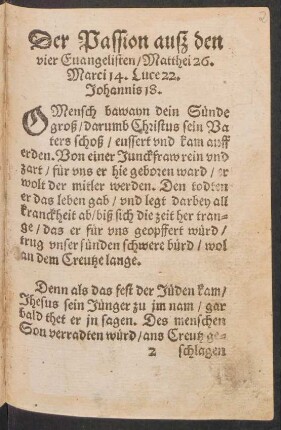 Der Passion auß den
vier Euangelisten / Matthei 26.
Marci 14. Luce 22.
Johannis 18.
O Mensch bawayn dein Sünde
groß / darumb Christus sein Va
ters schoß / eussert vnd kam auff
erden. Von einer Junckfraw rein vnd
zart / für vns er hie geboren ward / er
wolt der mitler werden. Den todten
er das leben gab / vnd legt darbey all
kranckheit ab / biß sich die zeit her tran-
ge / das er für vns geopffert würd /
trug vnser sünden schwere bürd / wol
an dem Creutze lange.
Denn als das fest der Jüden kam /
Jhesus sein Jünger zu jm nam / gar
bald thet er jn sagen. Des menschen
Son verradten würd / ans Creutz ge-
2 schlagen